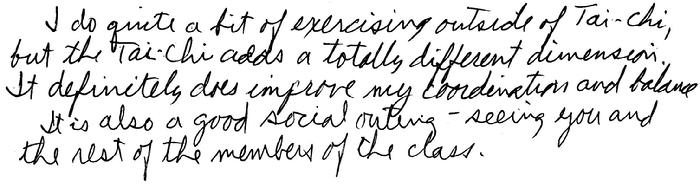 I do quite a bit of exercising outside of Tai-chi,
but the Tai-Chi adds a totally different dimension.
It definitely does improve my coordination and balance
It is also a good social outing - seeing you and
the rest of the members of the class.